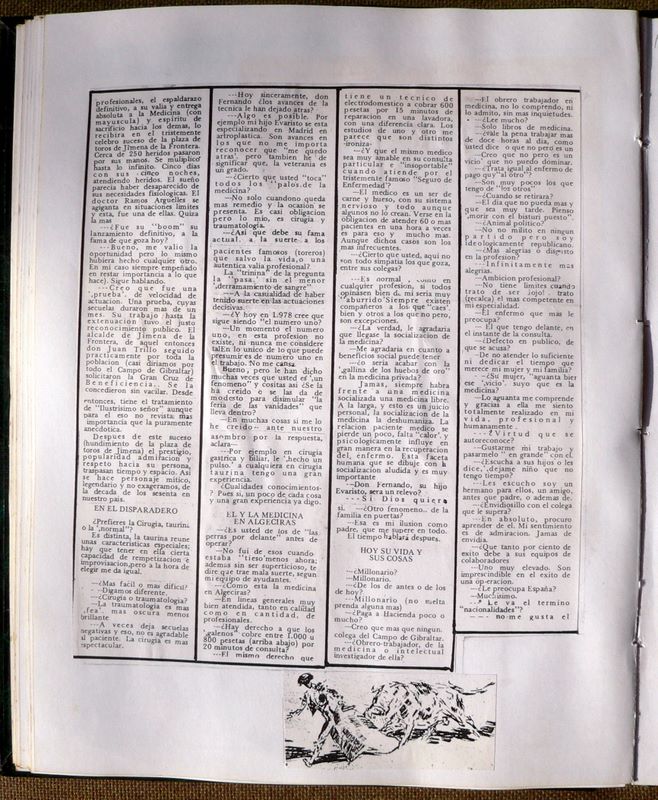 profesionales, el espaldarazo
definitivo, a su valia y entrega
absoluta a la Medicina (con
mayuscula) y espiritu de
sacrificio hacia los demas, lo
recibiria en el tristemente
celebre suceso de la plaza de
toros de Jimena de la Frontera.
Cerca de 250 heridos pasaron
por sus manos. Se multiplico
hasta lo infinito. Cinco dias
con sus cinco noches,
atendiendo heridos. El sueño
parecia haber desaparecido de
sus necesidades fisiologicas. El
doctor Ramos Arguelles se
agiganta en situaciones limites
y esta, fue una de ellas. Quiza
la mas
---¿Fue su "boom" su
lanzamiento definitivo, a la
fama de que goza hoy?
---Bueno, me valio la
oportunidad pero lo mismo
hubiera hecho cualquier otro.
En mi caso siempre empeñado
en restar importancia a lo que
hace). Sigue hablando.
---Creo que fue una
'prueba', de velocidad de
actuacion. Una prueba, cuyas
secuelas duraron mas de un
mes. Su trabajo hasta la
extenuacion tuvo el justo
reconocimiento publico. El
alcalde de Jimena de la
Frontera, de aquel entonces
don Juan Trillo seguido
practicamente por toda la
poblacion (casi diriamos por
todo el Campo de Gibraltar)
solicitaron la Gran Cruz de
Beneficiencia. Se la
concedieron sin vacilar. Desde
entonces, tiene el tratamiento
de "Ilustrisimo señor" aunque
para el eso no revista mas
importancia que la puramente
anecdotica.
Despues de este suceso
(hundimiento de la plaza de
toros de Jimena) el prestigio,
popularidad admiracion y
respeto hacia su persona,
traspasan tiempo y espacio. Asi
se hace personaje mitico,
legendario y no exageramos, de
la decada de los sesenta en
nuestro pais.
EN EL DISPARADERO
¿Prefieres la Cirugia, taurina
o la 'normal"?
Es distinta, la taurina reune
unas caracteristicas especiales;
hay que tener en ella cierta
capacidad de rempetizacion e
improvisacion,pero a la hora de
elegir me da igual.
¿Mas facil o mas dificil?
---Digamos diferente.
---¿Cirugia o traumatologia?
---La traumatologia es mas
'fea', mas oscura menos
brillante
---A veces deja secuelas
negativas y eso, no es agradable
al paciente. La cirugia es mas
espectacular.
---Hoy sinceramente, don
Fernando ¿los avances de la
tecnica le han dejado atras?
---Algo es posible. Por
ejemplo mi hijo Evaristo se esta
especializando en Madrid en
artroplastica. Son avances en
los que no me importa
reconocer que "me quedo
atras', pero tambien he de
significar que, la veterania es
un grado.
---¿Cierto que usted "toca"
todos los "palos.de la
medicina?
---No solo cuando no queda
mas remedio y la ocasion se
presenta. Es casi obligacion
pero lo mio, es cirugia y
traumatologia.
---¿Asi que debe su fama
actual, a la suerte a los
pacientes famosos (toreros)
que salvo la vida,o a una
autentica valia profesional?
La "trinna" de la pregunta
la "pasa, sin el menor
'derramamiento de sangre"
---A la casualidad de haber
tenido suerte en las actuaciones
decisivas.
---¿Y hoy en 1.978 cree que
sigue siendo "el numero uno?
---Un momento el numero
uno, en esta profesion no
existe, ni nunca me considere
tal.En lo unico de lo que puedo
presumir es de numero uno en
el trabajo. No me cansa.
Bueno, pero le han dicho
muchas veces que usted es 'un
fenomeno" y cositas asi ¿Se la
ha creido y se las da de
modesto para disimular "la
feria de las vanidades" que
lleva dentro?
---En muchas si me lo
he creido-- ante nuestro
asombro por la respuesta,
aclara---
---Por ejemplo en cirugia
gastrica y biliar, le 'hecho un
pulso.' a cualquiera en cirugia
taurina tengo una gran
experiencia.
¿Cualidades conocimientos?
Pues si, un poco de cada cosa
y una gran experiencia ya digo.
EL Y LA MEDICINA
EN ALGECIRAS
---¿Es usted de los de "las
perras por delante" antes de
operar?
---No fui de esos cuando
estaba "tieso"menos ahora;
ademas sin ser superticioso, te
dire que trae mala suerte, segun
mi equipo de ayudantes.
---¿Como esta la medicina
en Algeciras?
---En lineas generales muy
bien atendida, tanto en calidad
como en cantidad, de
profesionales.
---¿Hay derecho a que los
'galenos" cobre entre 1.000 u
800 pesetas (arriba abajo) por
20 minutos de consulta?
---El mismo derecho que
tiene un tecnico de
electrodomestico a cobrar 600
pesetas por 15 minutos de
reparacion en una lavadora,
con una diferencia clara. Los
estudios de uno y otro me
parece que son distintos
-ironiza-
---¿Y que el mismo medico
sea muy amable en su consulta
particular e "insoportable"
cuando atiende por el
tristemente famoso "Seguro de
Enfermedad'?
---El medico es un ser de
carne y hueso, con su sistema
nervioso y todo aunque
algunos no lo crean. Verse en la
obligacion de atender 60 o mas
pacientes en una hora a veces
es para eso y mucho mas.
Aunque dichos casos son los
mas infrecuentes.
---¿Cierto que usted, aqui no
son todo simpatia los que goza,
entre sus colegas?
---Es normal, como en
cualquier profesion, si todos
opinasen bien de mi seria muy
'aburrido'.Siempre existen
compañeros a los que"caes'
bien y otros a los que no pero,
son excepciones.
---¿La verdad, le agradaria
que llegase la socializacion de
la medicina?
---Me agradaria en cuanto a
beneficios social puede tener
---¿o seria acabar con la
'gallina de los huebos de oro"
en la medicina privada?
Jamas, siempre habra
frente a una medicina
socializada una medicina libre.
A la larga, y esto es un juicio
personal, la socializacion de la
medicina la deshumaniza. La
relacion paciente medico se
pierde un poco, falta "calor", y
psicologicamente influye en
gran manera en la recuperacion
del enfermo. Esta faceta
humana que se dibuje con la
socializacion aludida y es muy
importante
---Don Fernando, su hijo
Evaristo, sera un relevo?
---Si Dios quiera
si. ¿Otro fenomeno.. de la
familia en puertas?
---Esa es mi ilusion como
padre, que me supere en todo.
El tiempo hablara despues.
HOY SU VIDA Y
SUS COSAS
---¿Millonario?
---Millonario.
---¿De los de antes o de los
de hoy?
---Millonario (no suelta
prenda alguna mas)
---¿Paga a Hacienda poco o
mucho?
---Creo que mas que ningun
colega del Campo de Gibraltar.
---¿Obrero-trabajador, de la
medicina o intelectual
investigador de ella?
---El obrero trabajador en
medicina, no lo comprendo, ni
lo admito, sin mas inquietudes.
---¿Lee mucho?
---Solo libros de medicina.
---¿vale la pena trabajar mas
de doce horas al dia, como
usted dice o que no pero es un
---Creo que no pero es un
vicio" que no puedo dominar.
---¿Trata igual al enfermo de
pago que "al otro"?
---Son muy pocos los que
tengo de "los otros"
---¿Cuando se retirara?
---El dia que no pueda mas y
que sea muy tarde. Pienso
'morir con el bisturi puesto".
---¿Animal politico?
---No no milito en ningun
partido pero soy
ideologicamente republicano.
---¿Mas alegrias o disgusto
en la profesion?
---Infinitamente mas
alegrias.
---Ambicion profesional?
---No tiene limites cuando
trato de ser lojo! trato
(recalca) el mas competente en
mi especialidad.
---El enfermo que mas le
preocupa?
---El que tengo delante, en
el instante de la consulta.
---Defecto en publico, de
que se acusa?
---De no atender lo suficiente
ni dedicar el tiempo que
merece mi mujer y mi familia?
---¿Su mujer, "aguanta bien
ese 'vicio'. suyo que es la
medicina?
---Lo aguanta me comprende
y gracias a ella me siento
totalmente realizado en mi
vida, profesional y
humanamente.
---¿Virtud que se
autoreconoce?
---Gustarme mi trabajo y
pasarmelo "en grande" con el.
---¿Escucha a sus hijos o les
dice, 'dejame niño que no
tengo tiempo?
---Les escucho soy un
hermano para ellos, un amigo,
antes que padre, o ademas de.
---¿Envidiosillo con el colega
que le supera?
---En absoluto, procuro
aprender de el. Mi sentimiento
es de admiracion. Jamas de
envidia.
---¿Que tanto por ciento de
exito debe a sus equipos de
colaboradores
---Uno muy elevado. Son
imprescindible en el exito de
una op-eracion.
---¿Le preocupa España?
---Muchisimo.
---¿Le va el termino
"nacionalidades"?
---no me gusta el